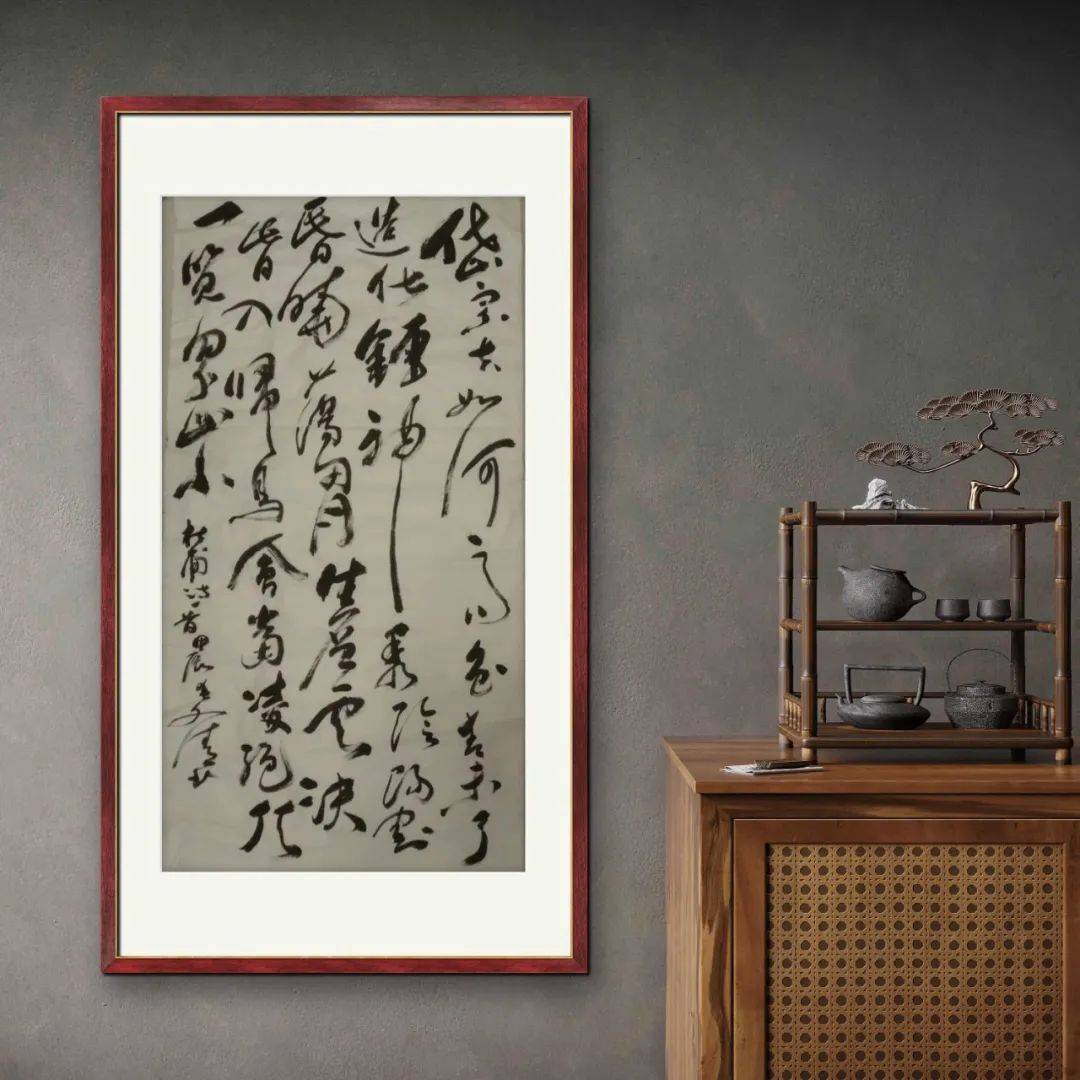 岱宗夫如何齐鲁青未了
造化鍾神秀陰陽割
昏曉蕩胸生层雲決
眥入歸鳥會當凌絕頂
一览众山小
杜甫诗一首甲辰